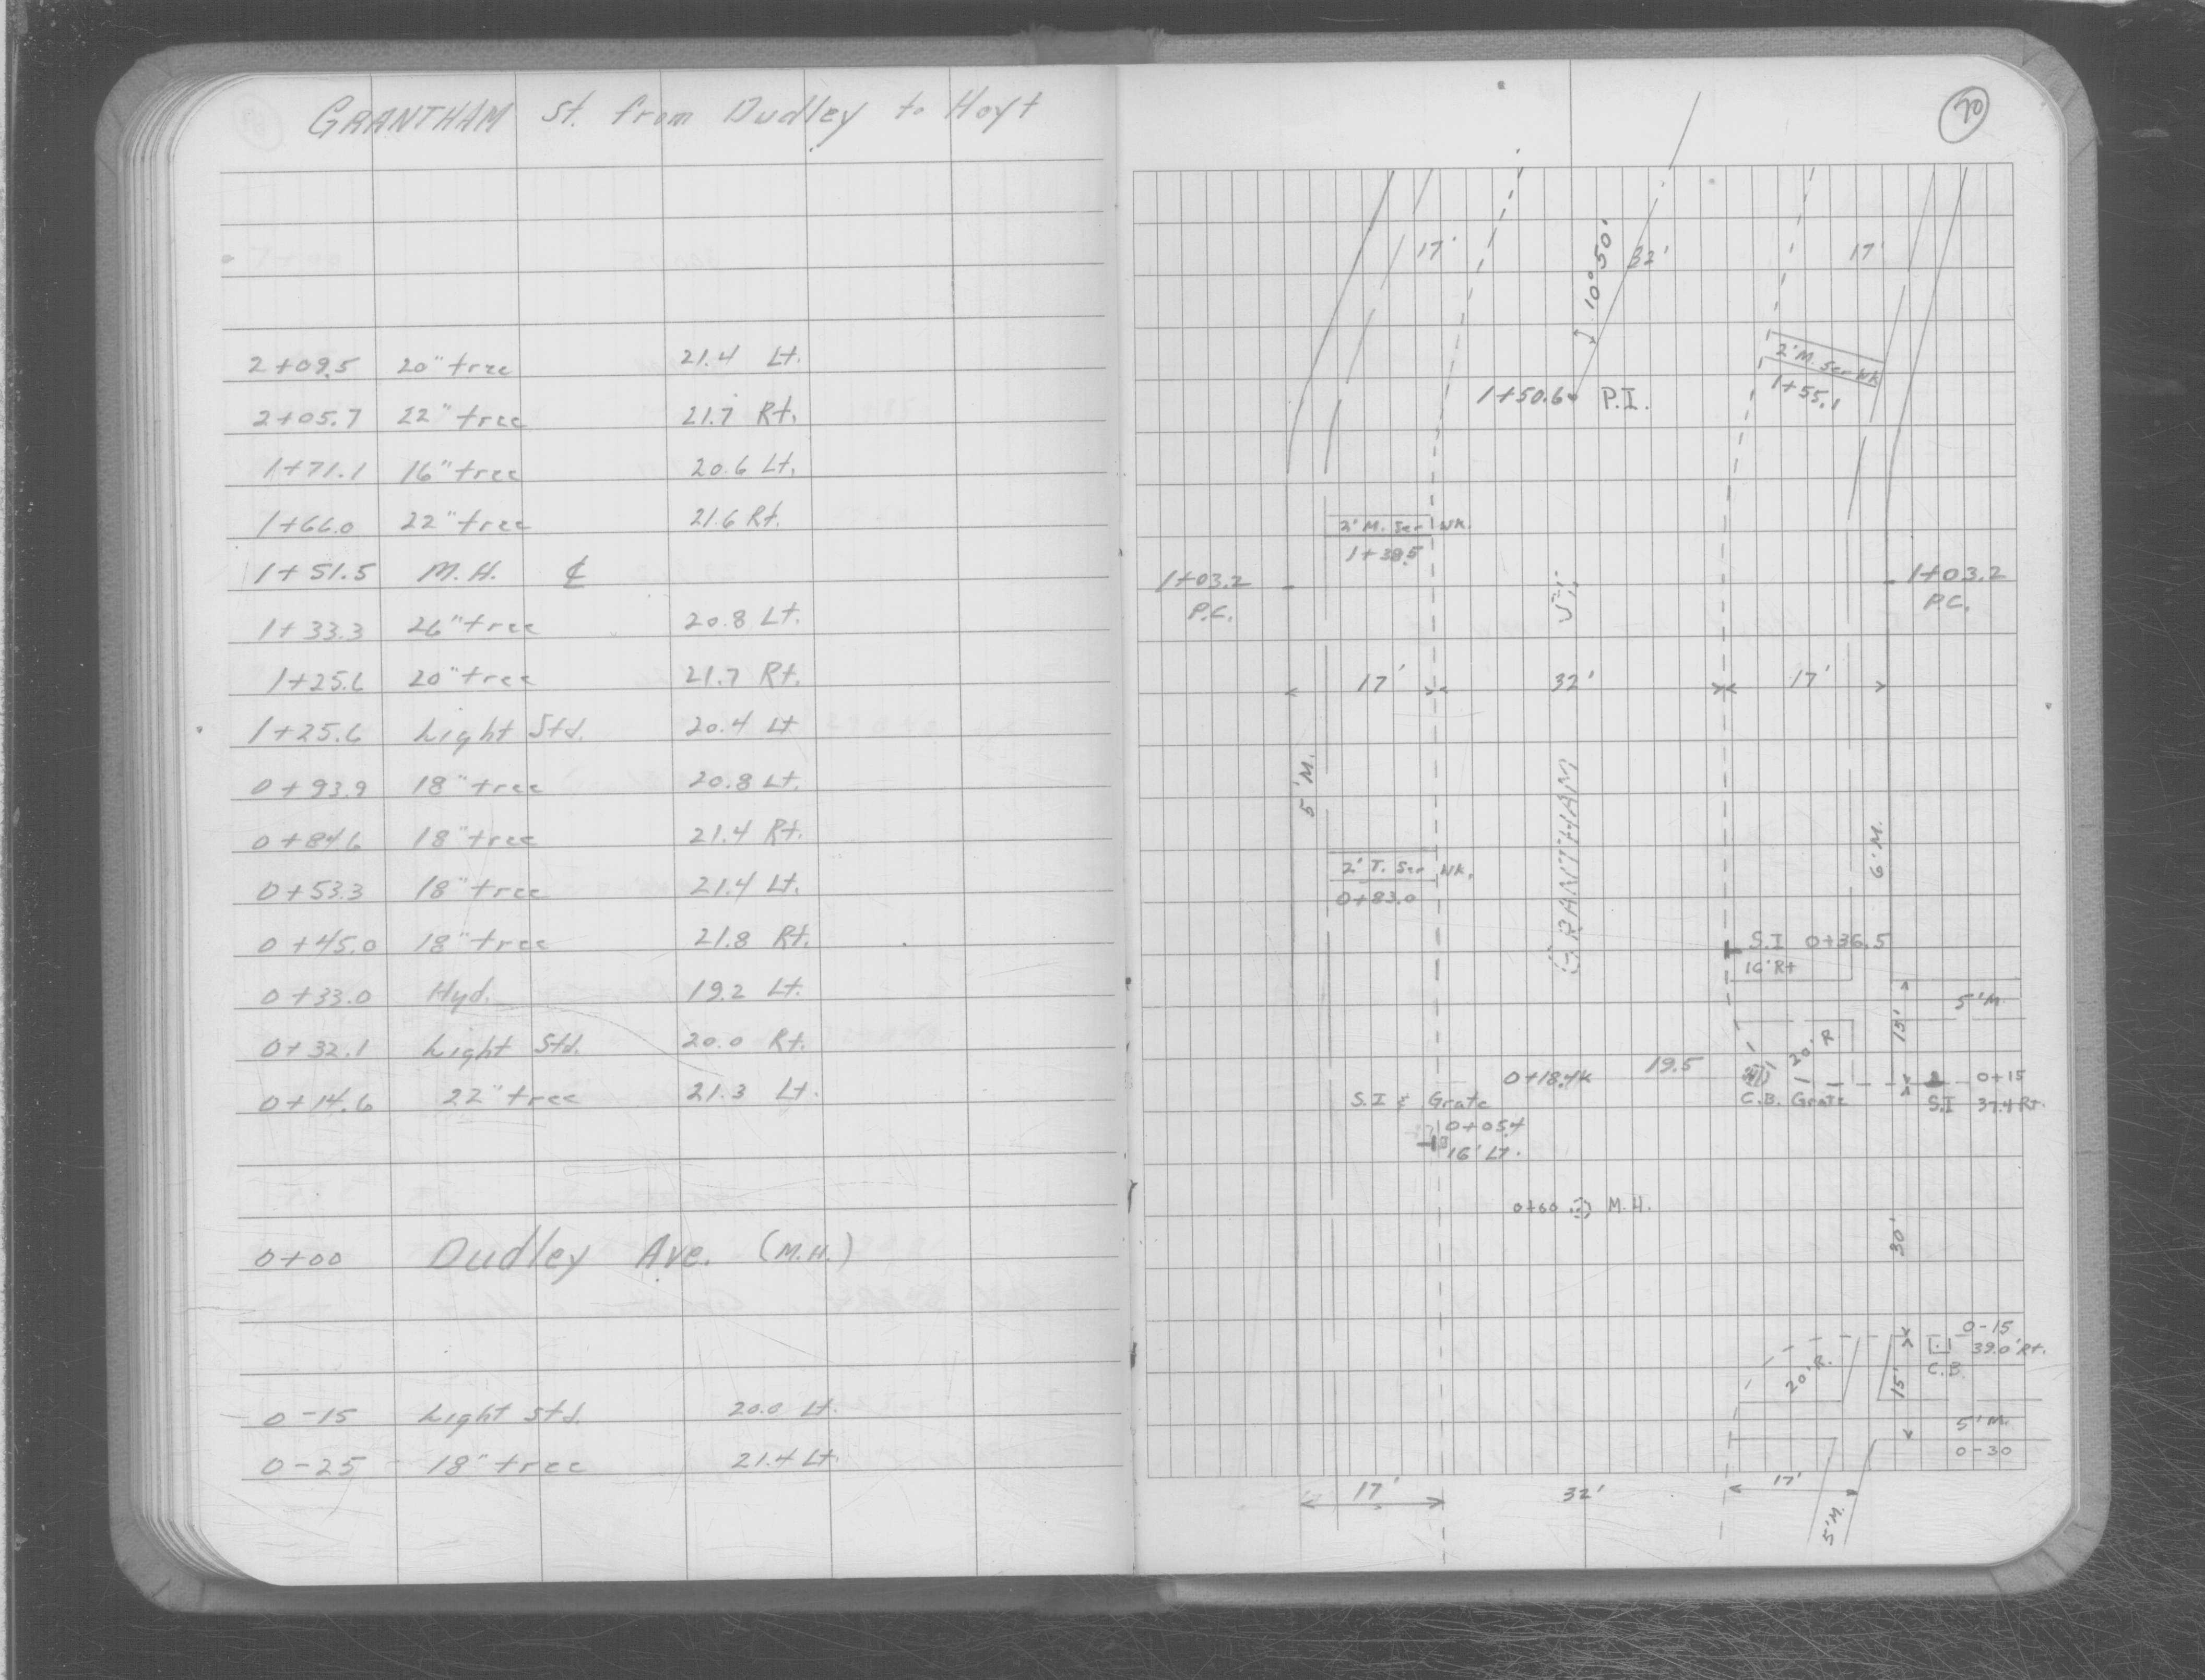 GRANTHAM St. from Dudley to Hoyt
2+09.5 20" tree 21.4 Lt.
2+05.7 22" tree 21.7 Rt.
1+71.1 16" tree 20.6 Lt.
1+66.0 22" tree 21.6 Rt.
1+51.5 M.H. ℄
1+33.3 26" tree 20.8 Lt.
1+25.6 20" tree 21.7 Rt.
1+25.6 Light Std. 20.4 Lt
0+93.9 18" tree 20.8 Lt.
0+84.6 18" tree 21.4 Rt.
0+53.3 18" tree 21.4 Lt.
0+45.0 18" tree 21.8 Rt.
0+33.0 Hyd. 19.2 Lt.
0+32.1 Light Std. 20.0 Rt.
0+14.6 22" tree 21.3 Lt.
0+00 Dudley Ave. (M.H.)
0-15 Light Std. 20.0 Lt.
0-25 18" tree 21.4 Lt.
20
17' 32' 17'
10°50'
2' M. Ser Wk
1+55.1
1+50.6 P.I.
2' M. Ser Wk.
1+38.5
1+03.2
P.C.
1+03.2
P.C.
17' 32' 17'
GRANTHAM ST.
5' M.
6' M.
2' T. Ser Wk.
0+83.0
S.I 0+36.5
16' Rt
5' M.
15'
20' R
0+18.4 19.5
C.B. Grate
0+15
S.I 37.4 Rt.
S.I & Grate
0+05.4
16' Lt.
0+00 M.H.
30'
0-15
39.0' Rt.
C.B.
20' R.
15'
5' M.
0-30
17' 32' 17'
5' M.